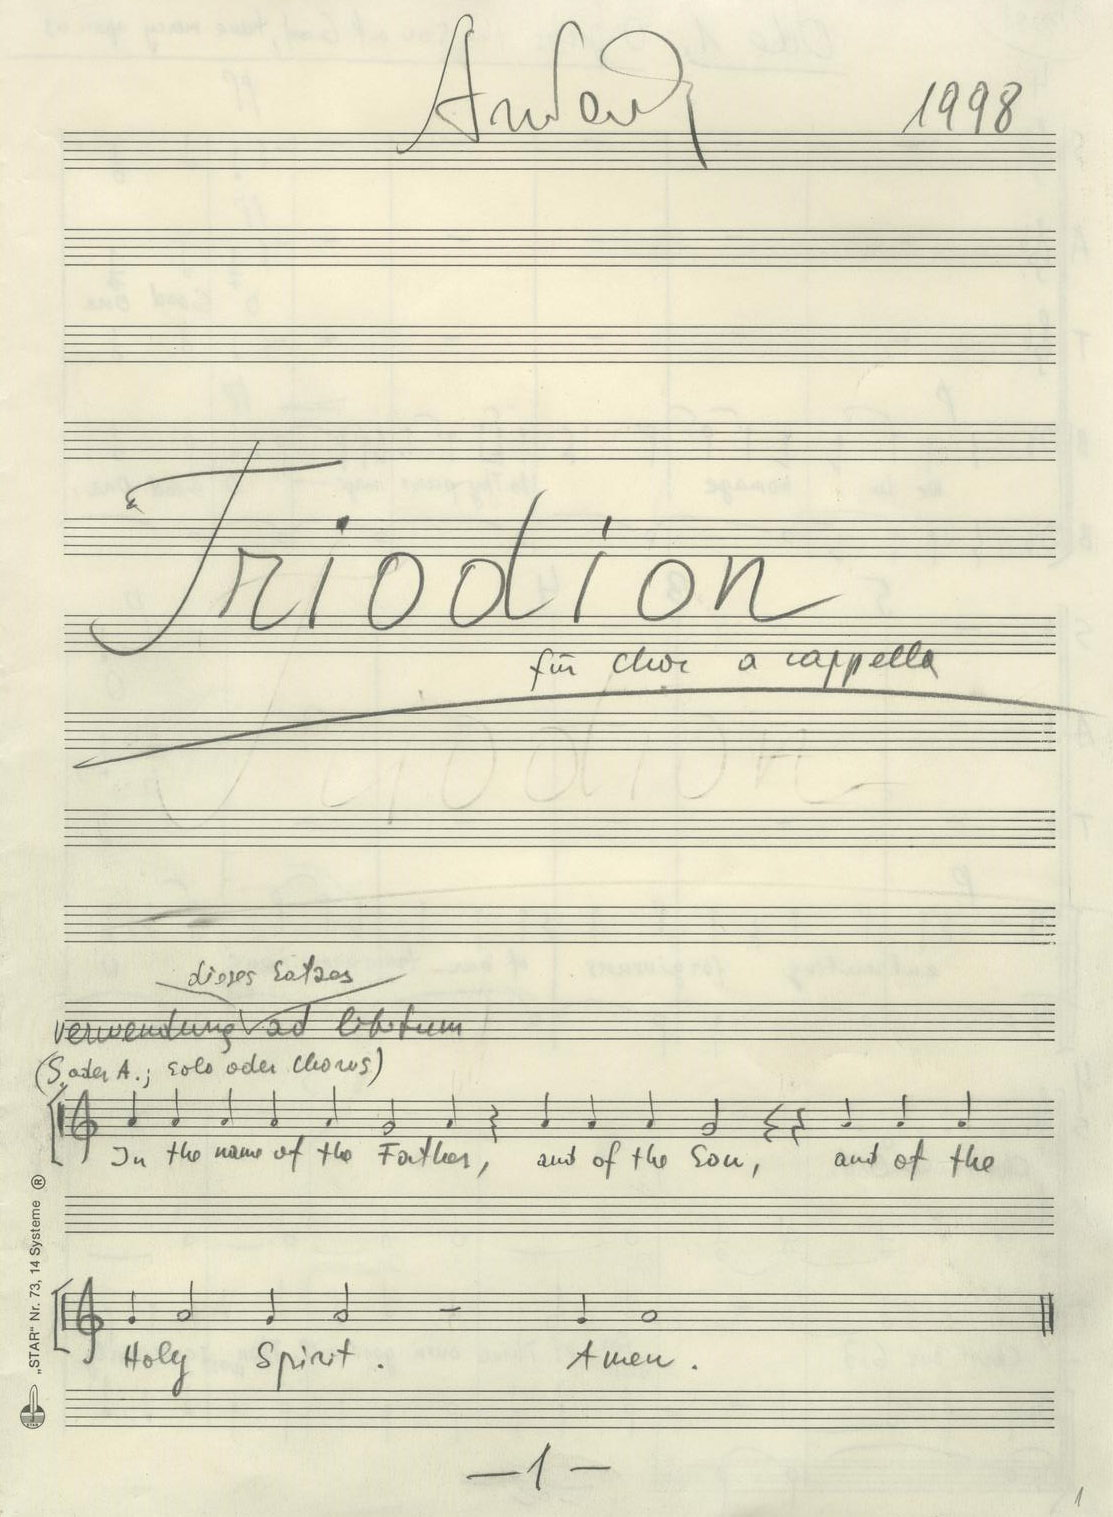 1998
Triodion
für Chor a cappella
dieses Satzes
Verwendung ad libitum
(S. oder A.; solo oder Chorus)
In the name of the Father, and of the Son, and of the
„STAR“ Nr. 73, 14 Systeme ®
Holy Spirit. Amen.
— 1 —
1